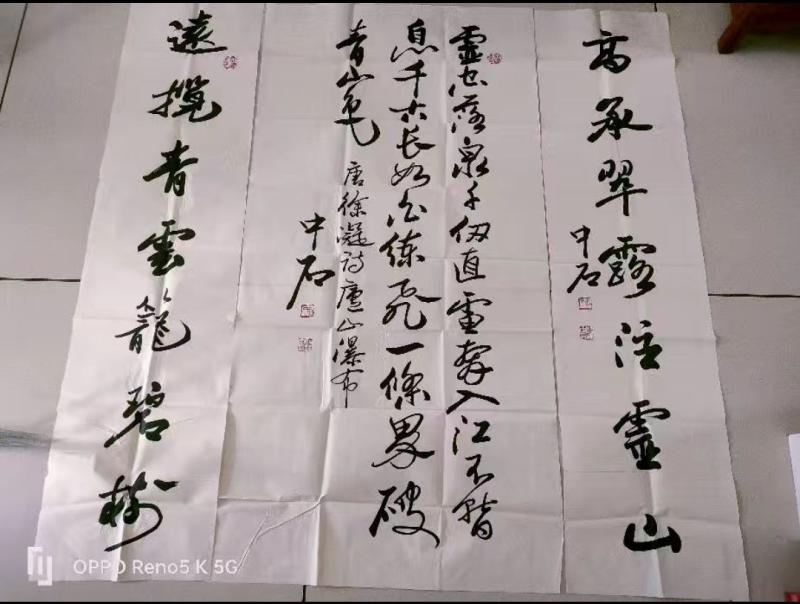 高承翠露注靈山
中石
虛空落泉千仞直雷奔入江不暫
息千古長如白練飛一條界破
青山色 唐徐凝詩廬山瀑布
中石
遠攬青雲籠碧樹
OPPO Reno5 K 5G